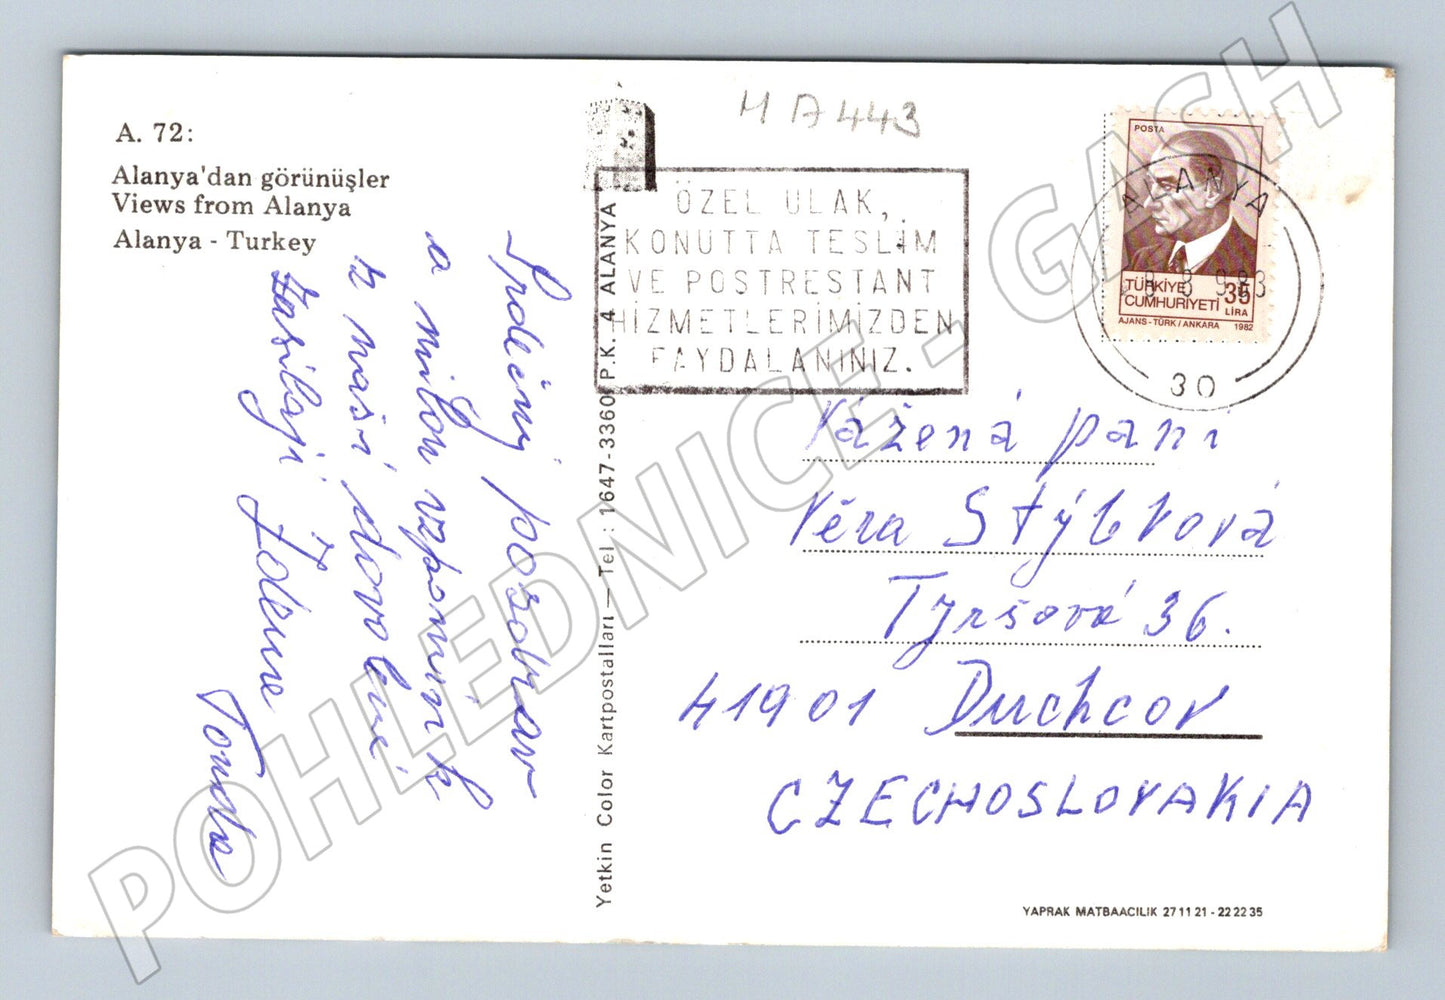 A. 72:
Alanya'dan görünüşler
Views from Alanya
Alanya - Turkey
M A 443
ÖZEL ULAK,
KONUTTA TESLİM
VE POSTRESTANT
HİZMETLERİMİZDEN
FAYDALANINIZ.
POSTA
ALANYA
TÜRKİYE
CUMHURİYETİ
35
LİRA
AJANS-TÜRK/ANKARA 1982
30
Srdečný pozdrav
a milou vzpomínk
z naší dovolené
zasílají Zdene
Tonda
Yetkin Color Kartpostalları — Tel : 1647-3360 P.K. 4 ALANYA
Vážená paní
Věra Stýblová
Tyršová 36.
41901 Duchcov
CZECHOSLOVAKIA
YAPRAK MATBAACILIK 27 11 21 - 22 22 35
POHLEDNICE - GASH